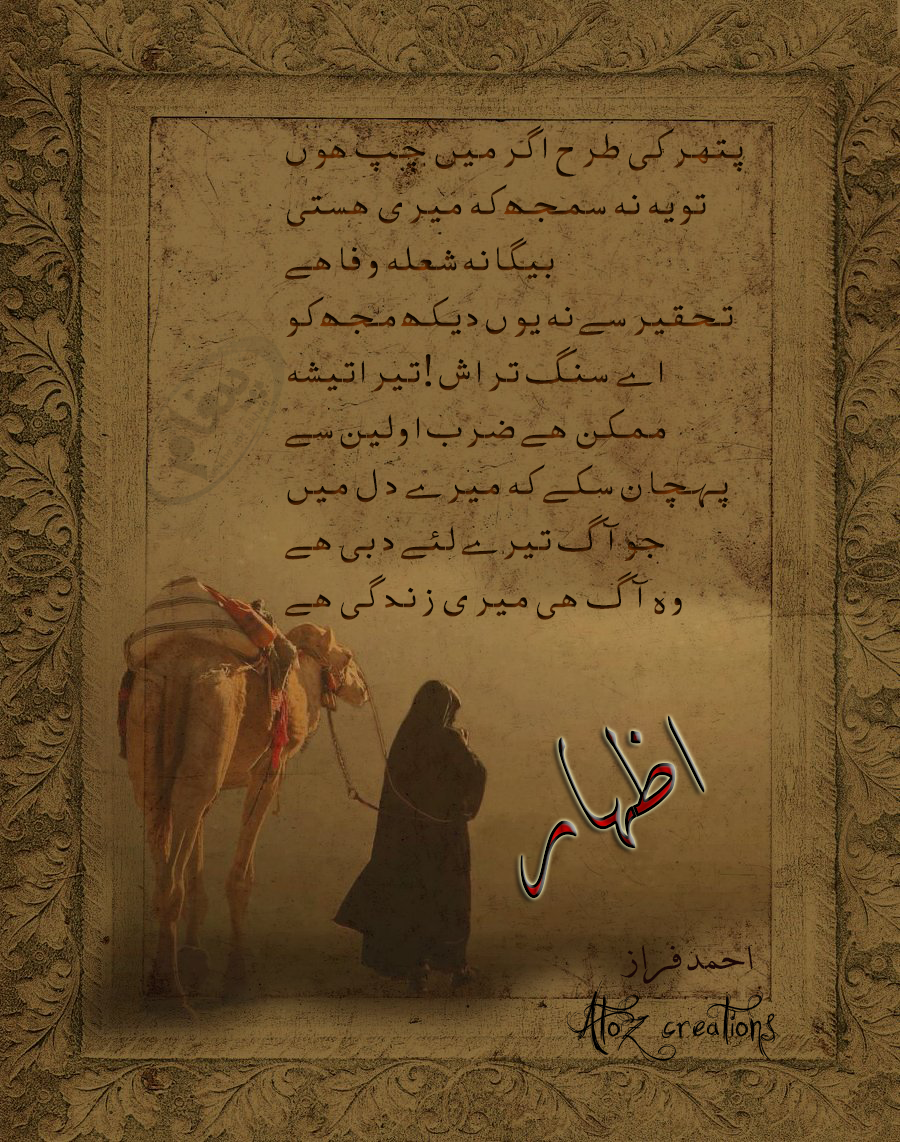 پتھر کی طرح اگر میں چپ ھوں
تو یہ نہ سمجھ کہ میری ھستی
بیگانہ شعلہ وفا ھے
تحقیر سے نہ یوں دیکھ مجھ کو
اے سنگ تراش! تیرا تیشہ
ممکن ھے ضرب اولین سے
پہچان سکے کہ میرے دل میں
جو آگ تیرے لئے دبی ھے
وہ آگ ھی میری زندگی ھے
پیغام
اظہار
احمد فراز
AtoZ creations